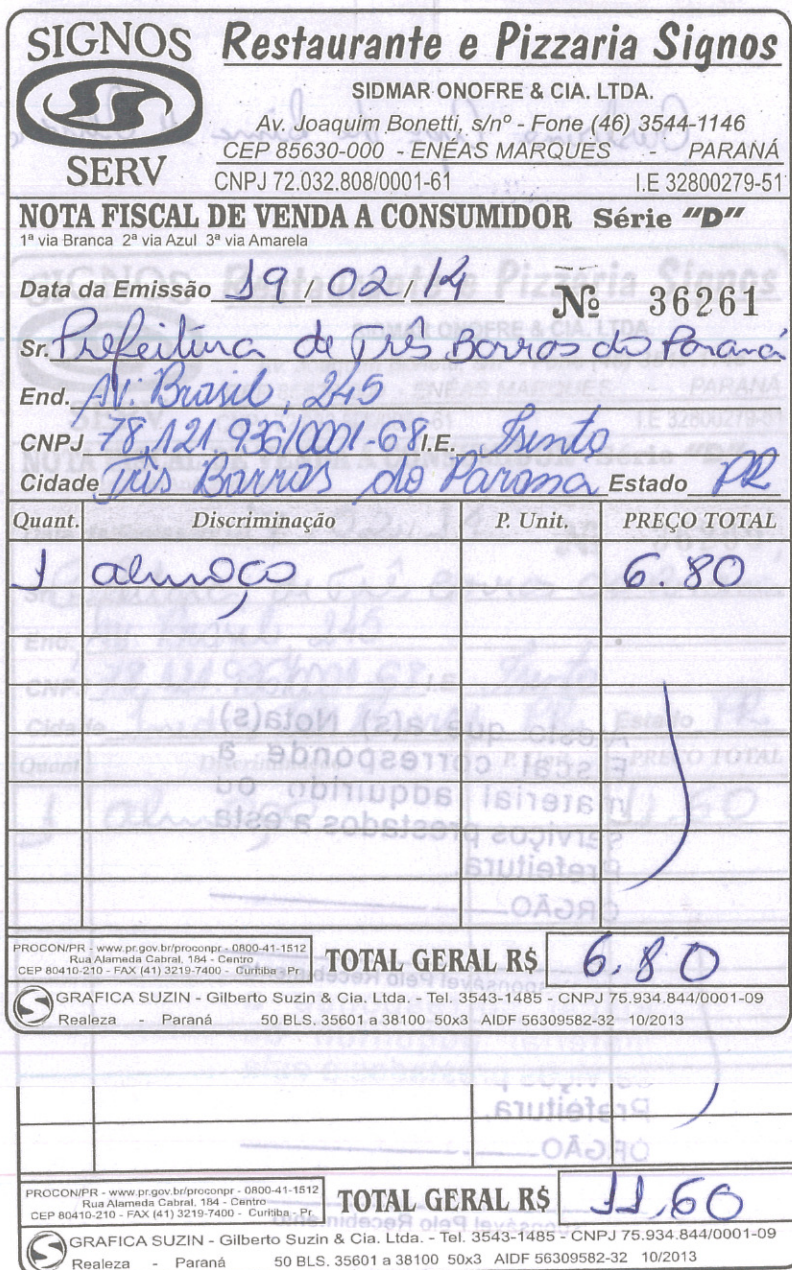 SIGNOS
SERV
Restaurante e Pizzaria Signos
SIDMAR ONOFRE & CIA. LTDA.
Av. Joaquim Bonetti, s/nº - Fone (46) 3544-1146
CEP 85630-000 - ENÉAS MARQUES - PARANÁ
CNPJ 72.032.808/0001-61 I.E 32800279-51
NOTA FISCAL DE VENDA A CONSUMIDOR Série "D"
1ª via Branca 2ª via Azul 3ª via Amarela
Data da Emissão 19 / 02 / 14 Nº 36261
Sr. Prefeitura de Três Barras do Paraná
End. Av. Brasil, 245
CNPJ 78.121.936/0001-68 I.E. Isento
Cidade Três Barras do Parana Estado PR
Quant. Discriminação P. Unit. PREÇO TOTAL
1 almoço 6.80
PROCON/PR - www.pr.gov.br/proconpr - 0800-41-1512
Rua Alameda Cabral, 184 - Centro
CEP 80410-210 - FAX (41) 3219-7400 - Curitiba - Pr
TOTAL GERAL R$ 6.80
GRAFICA SUZIN - Gilberto Suzin & Cia. Ltda. - Tel. 3543-1485 - CNPJ 75.934.844/0001-09
Realeza - Paraná 50 BLS. 35601 a 38100 50x3 AIDF 56309582-32 10/2013
Prefeitura.
ÓRGÃO
PROCON/PR - www.pr.gov.br/proconpr - 0800-41-1512
Rua Alameda Cabral, 184 - Centro
CEP 80410-210 - FAX (41) 3219-7400 - Curitiba - Pr
TOTAL GERAL R$ 11,60
GRAFICA SUZIN - Gilberto Suzin & Cia. Ltda. - Tel. 3543-1485 - CNPJ 75.934.844/0001-09
Realeza - Paraná 50 BLS. 35601 a 38100 50x3 AIDF 56309582-32 10/2013